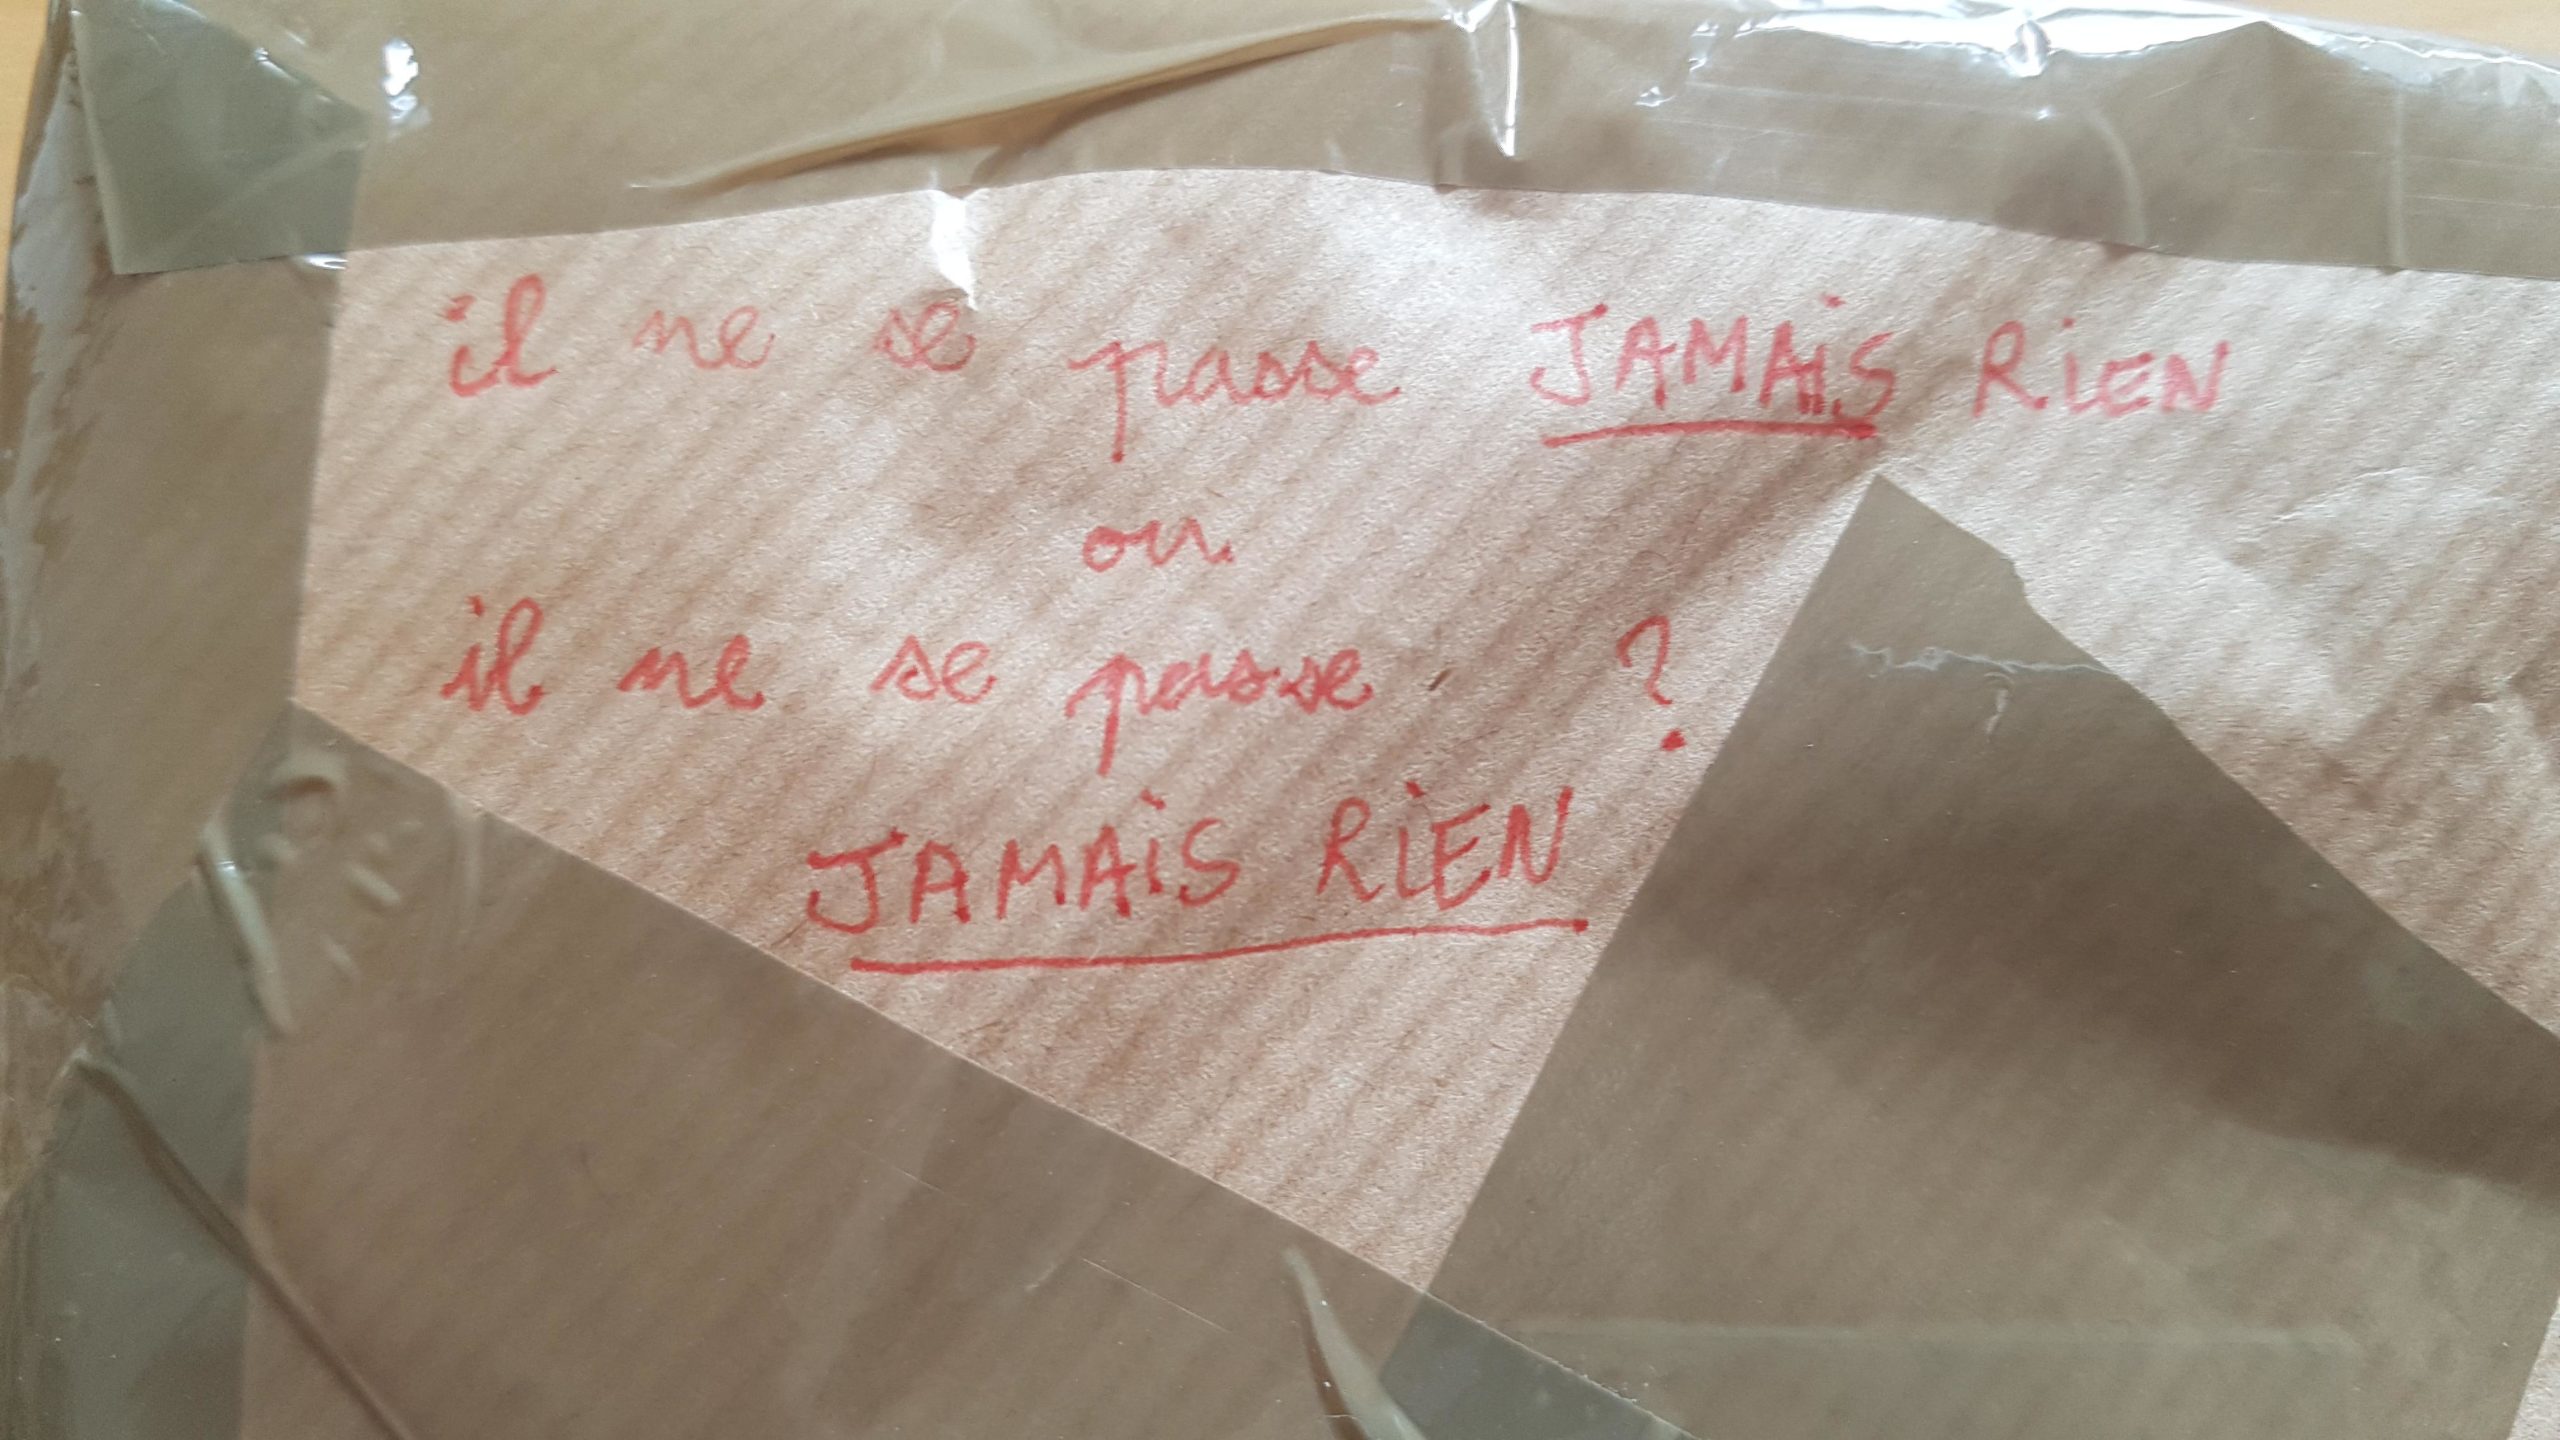 il ne se passe JAMAiS RiEN
ou
il ne se passe ?
JAMAiS RiEN